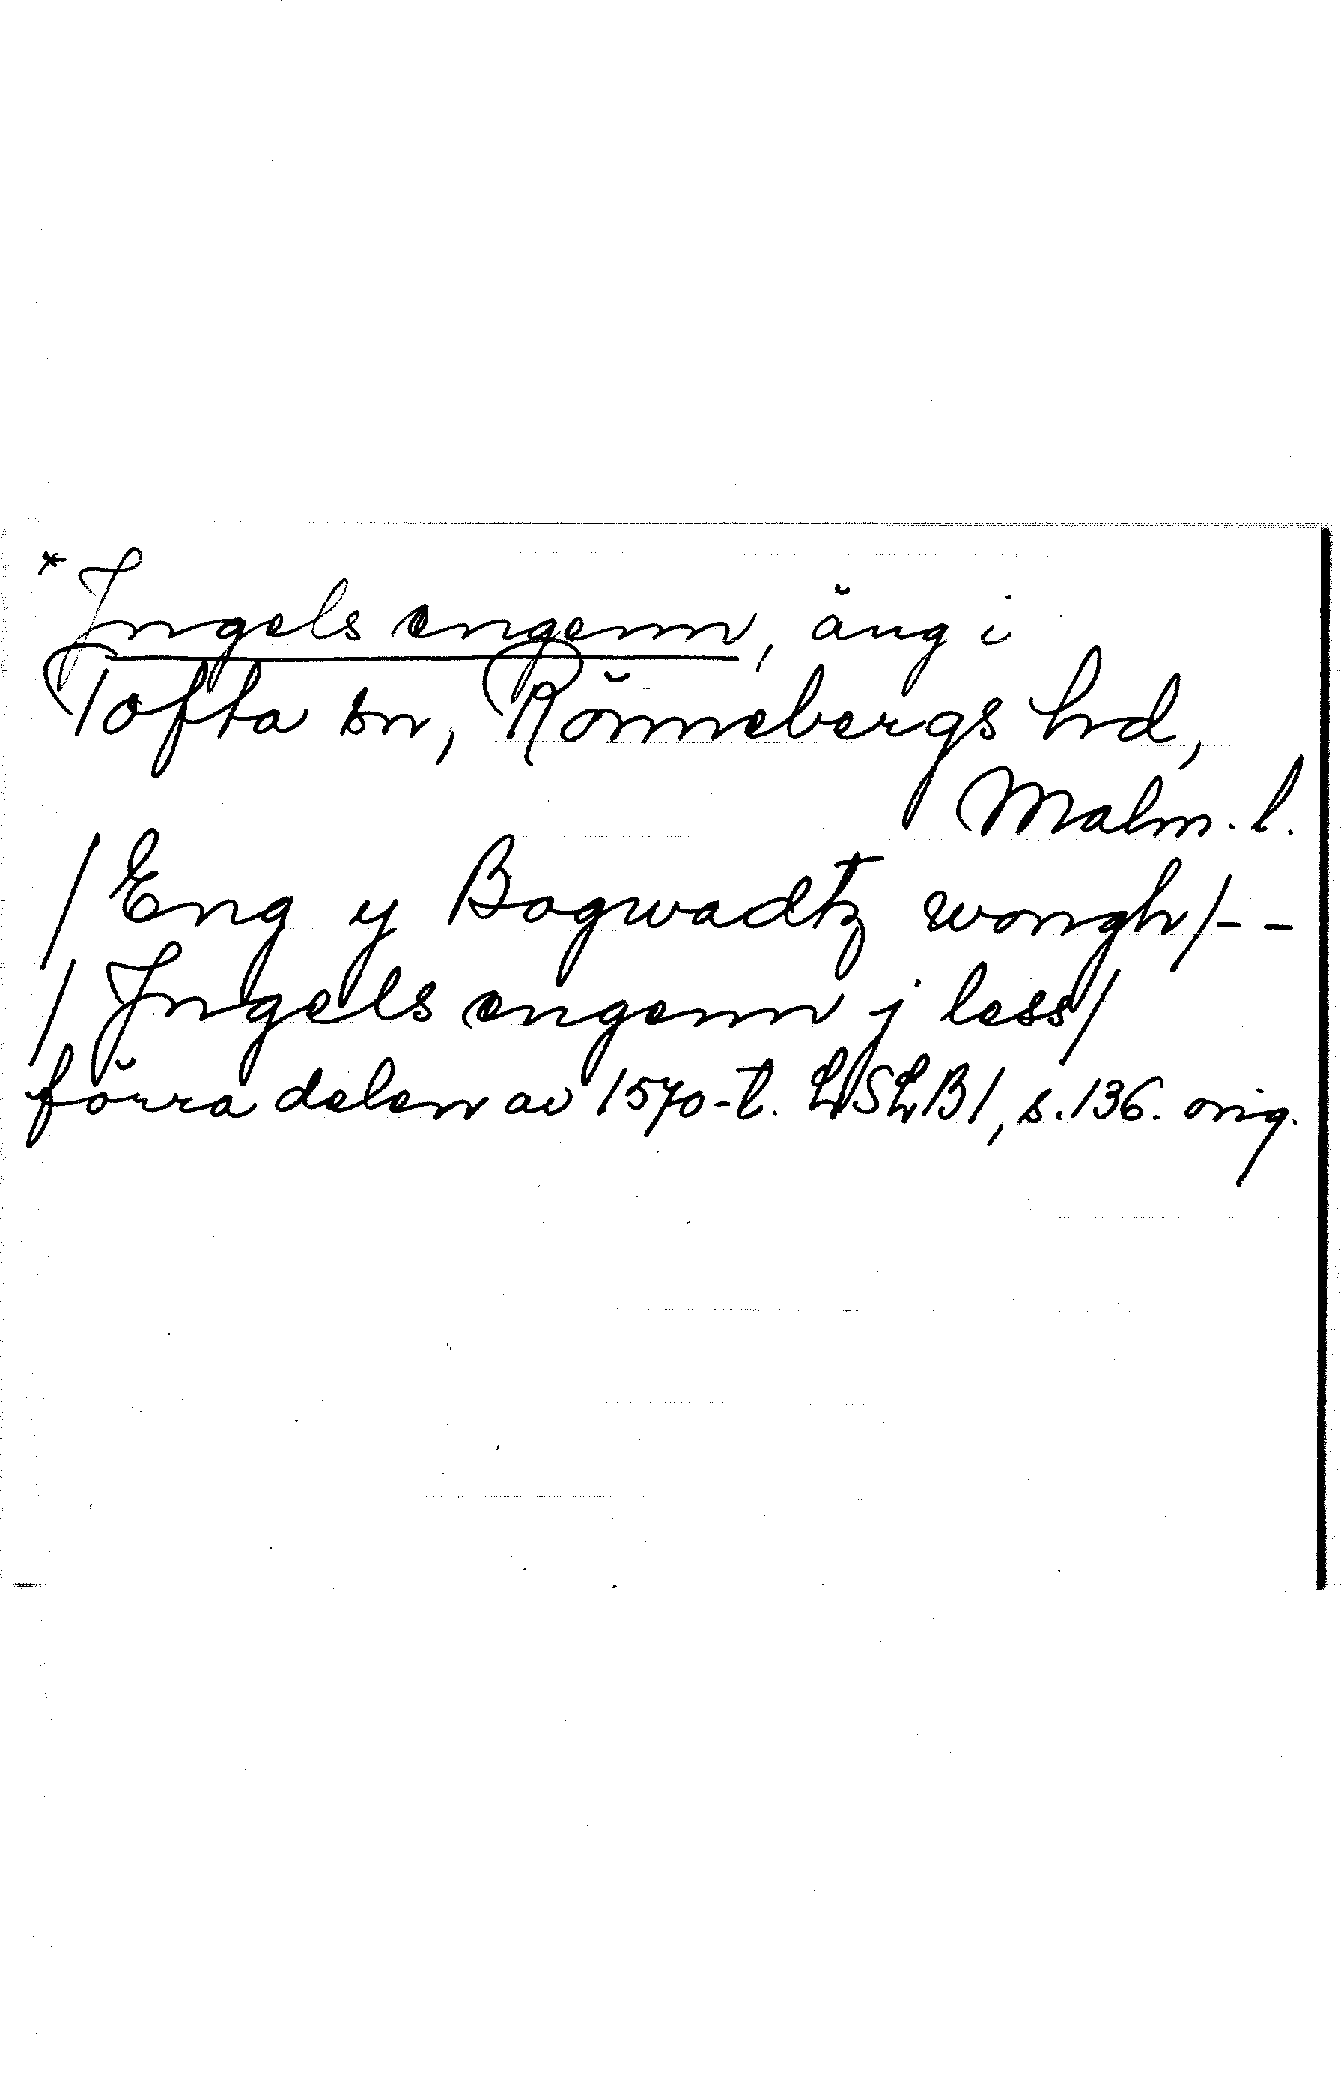 * Jngels engenn, äng i
Tofta sn, Rönnebergs hd,
Malm. l.
/ Eng y Bogwadtz wongh / - -
/ Jngels engenn j less /
förra delen av 1570-t. LSLB 1, s. 136. orig.